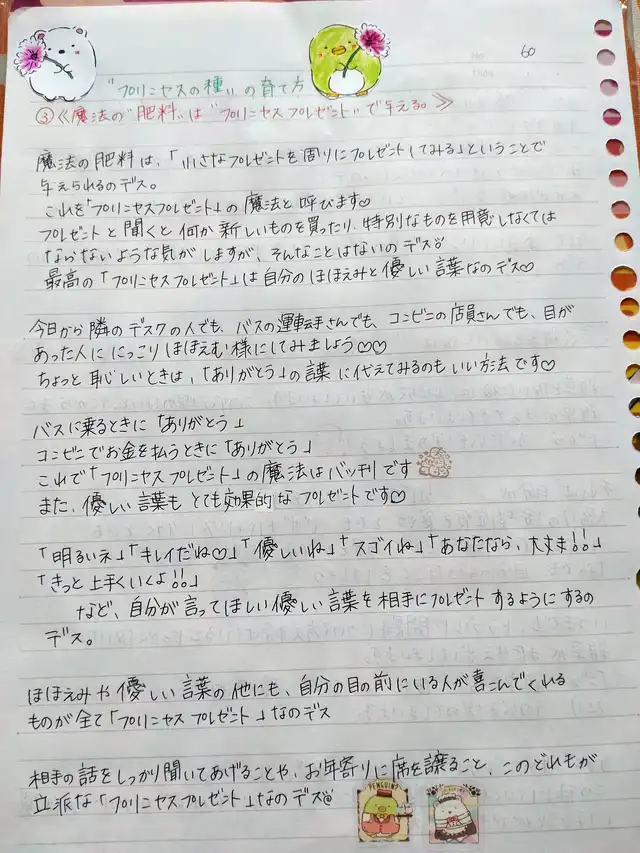 No
60
"プリンセスの種"の育て方
③≪魔法の"肥料"は"プリンセスプレゼント"で与える。≫
魔法の肥料は、「小さなプレゼントを周りにプレゼントしてみる」ということで
与えられるのデス。
これを「プリンセスプレゼント」の魔法と呼びます♡
プレゼントと聞くと何か新しいものを買ったり、特別なものを用意しなくては
ならないような気がしますが、そんなことはないのデス
最高の「プリンセスプレゼント」は自分のほほえみと優しい言葉なのデス♡
今日から隣のデスクの人でも、バスの運転手さんでも、コンビニの店員さんでも、目が
あった人ににっこりほほえむ様にしてみましよう♡♡
ちょっと恥しいときは、「ありがとう」の言葉に代えてみるのもいい方法です♡
バスに乗るときに「ありがとう」
コンビニでお金を払うときに「ありがとう」
これで「プリンセスプレゼント」の魔法はバッチリです
また、優しい言葉もとても効果的なプレゼントです♡
「明るいネ」「キレイだね♡」「優しいね」「スゴイね」「あなたなら、大丈夫!!」
「きっと上手くいくよ!!」
など、自分が言ってほしい優しい言葉を相手にプレゼントするようにするの
デス。
ほほえみや優しい言葉の他にも、自分の目の前にいる人が喜こんでくれる
ものが全て「プリンセスプレゼント」なのデス
相手の話をしっかり聞いてあげることや、お年寄りに席を譲ること、このどれもが
立派な「プリンセスプレゼント」なのデス
PENGUIN?